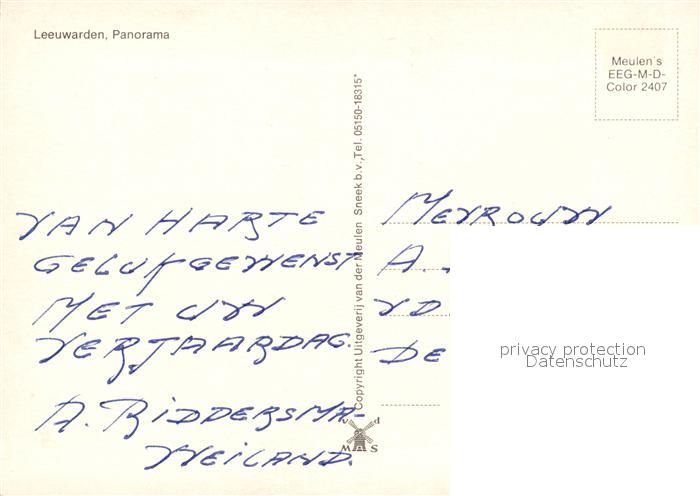 Leeuwarden, Panorama
Meulen's
EEG-M-D-
Color 2407
Copyright Uitgeverij van der Meulen Sneek b.v., Tel. 05150-18315*
VAN HARTE
GELUKGEWENST
MET UW
VERJAARDAG.
A. RIDDERSMA-
WEILAND.
v d
M S
MEVROUW
A.
VD
DE
privacy protection
Datenschutz